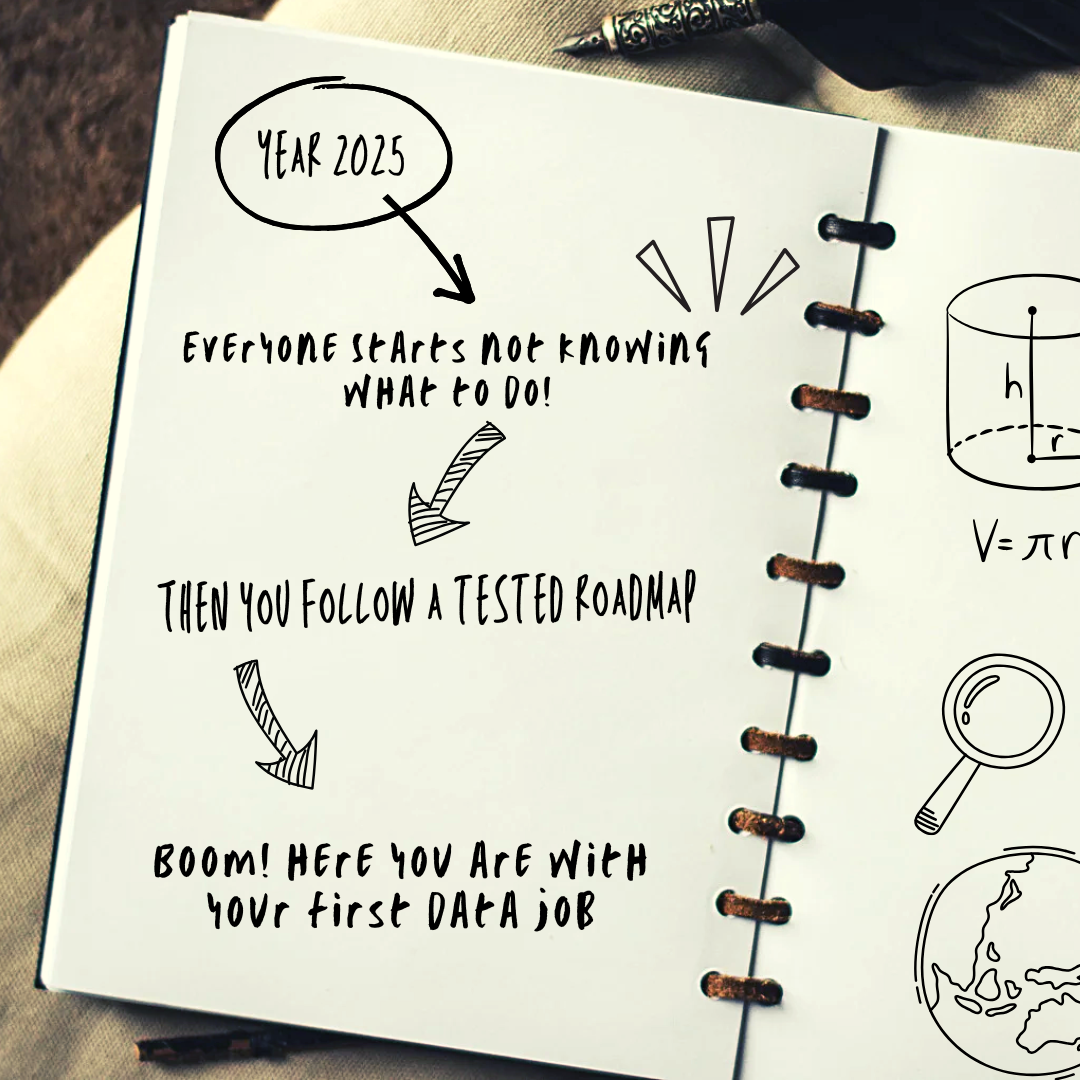 YEAR 2025
EVEryONE StArts not KNOWING
WHAt to DO!
THEN YOU FOLLOW A TESTED ROADMAP
BOOm! HErE YOU ArE WitH
YOUr first DAtA joB
h
r
V= πr